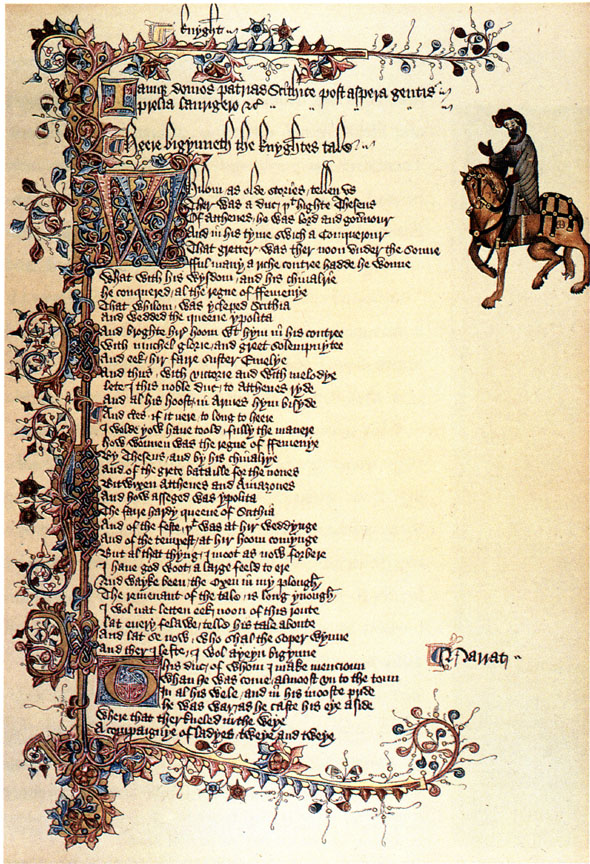 knyght
Iamq domos patrias Scithice post aspera gentis
prelia laurigero &c
Heere bigynneth the knyghtes tale
Whilom as olde stories tellen vs
Ther was a duc þt highte Theseus
Of Atthenes he was lord and gouernour
And in his tyme swich a Conquerour
That gretter was ther noon vnder the sonne
fful many a riche contree hadde he wonne
What with his wysdom and his chiualrie
he conquered al the regne of ffemenye
That whilom was ycleped Scithia
And wedded the queene ypolita
And broghte hir hoom wt hym in his contree
With muchel glorie and greet solempnytee
And eek hir faire suster Emelye
And thus with victorie and with melodye
lete I this noble duc to Atthenes ryde
And al his hoost in Armes hym bisyde
And certes if it nere to long to heere
I wolde yow haue toold fully the manere
how wonnen was the regne of ffemenye
By Theseus and by his chiualrye
And of the grete bataille for the nones
Bitwixen Atthenes and Amazones
And how asseged was ypolita
The faire hardy queene of Scithia
And of the feste þt was at hir weddynge
And of the tempest at hir hoom comynge
But al that thyng I moot as now forbere
I haue god woot a large feeld to ere
And wayke been the Oxen in my plough
The remenant of the tale is long ynough
I wol nat letten eek noon of this route
lat euery felawe telle his tale aboute
And lat se now who shal the soper wynne
And ther I lefte I wol ayeyn bigynne
Narrat
This duc of whom I make mencioun
Whan he was come almoost vn to the toun
In al his wele and in his mooste pride
he was war as he caste his eye aside
Where that ther kneled in the weye
A compaignye of ladyes tweye and tweye